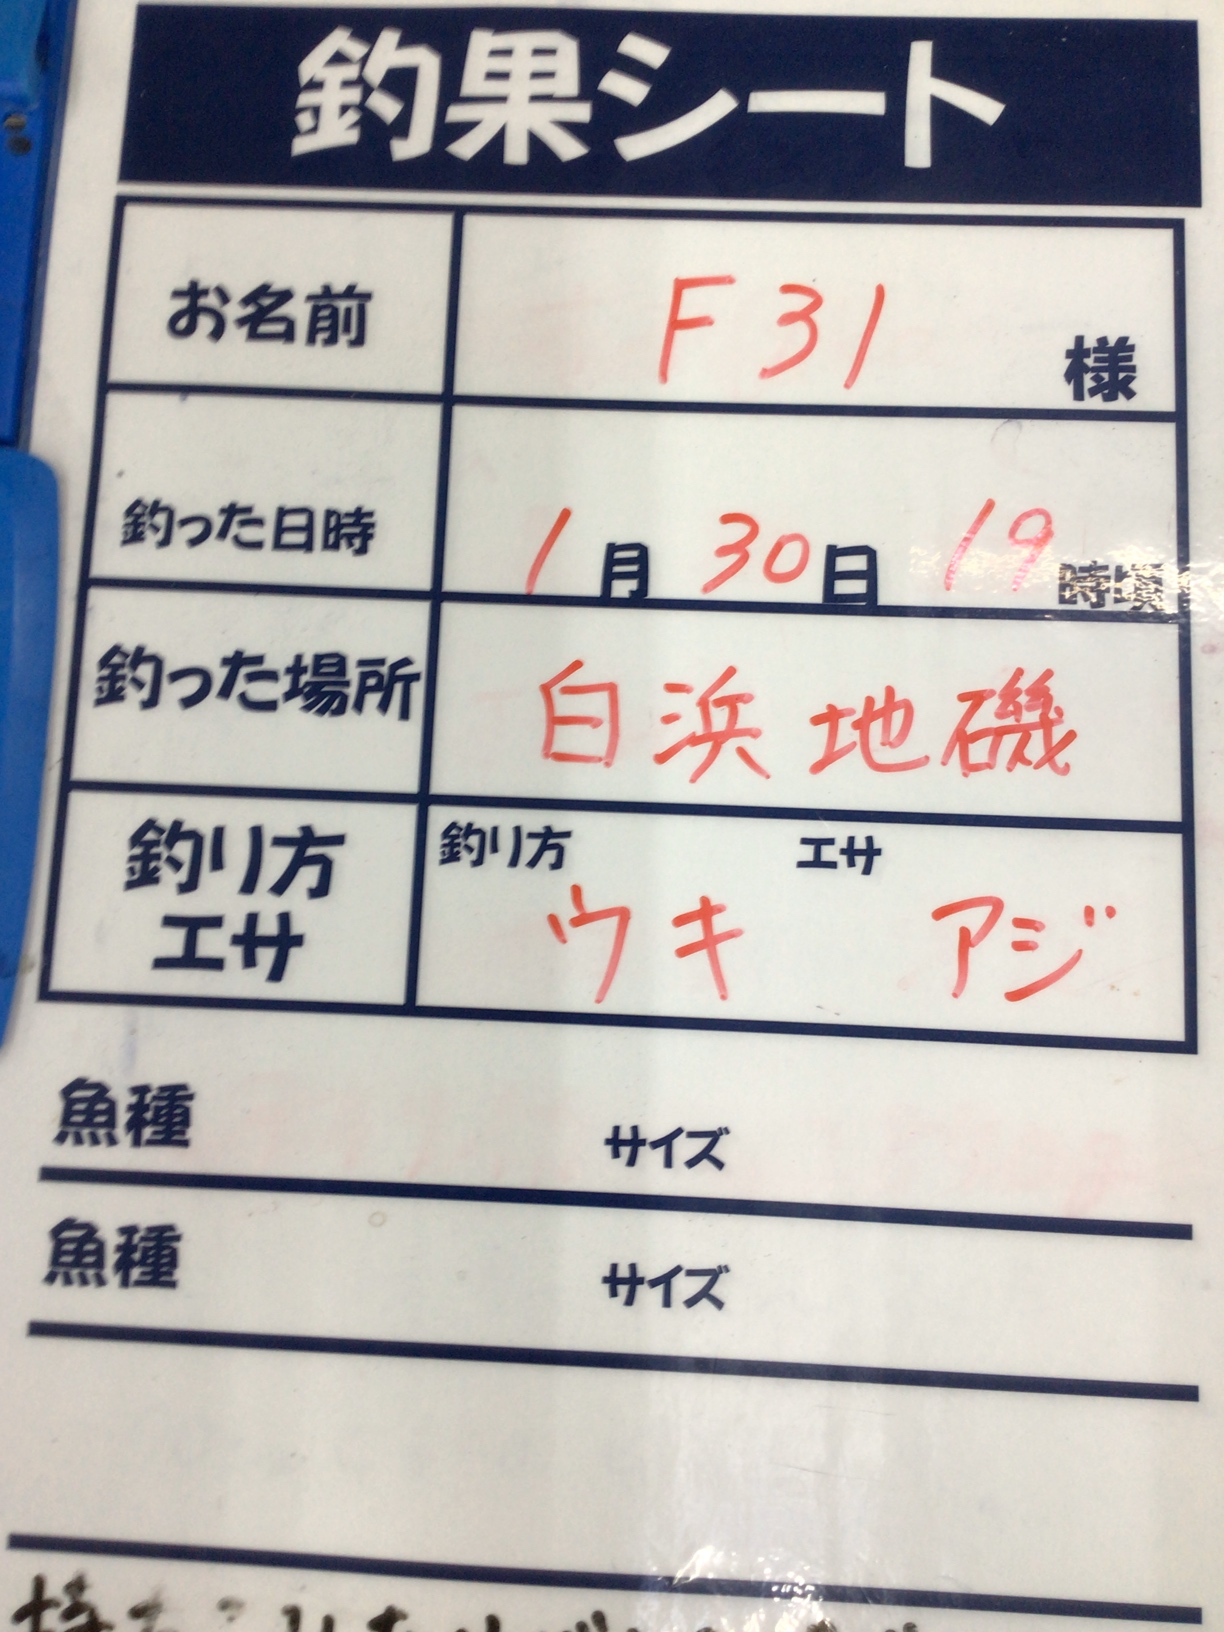 釣果シート
お名前 F31 様
釣った日時 1月30日19時頃
釣った場所 白浜地磯
釣り方 エサ
釣り方
エサ
ウキ アジ
魚種 サイズ
魚種 サイズ